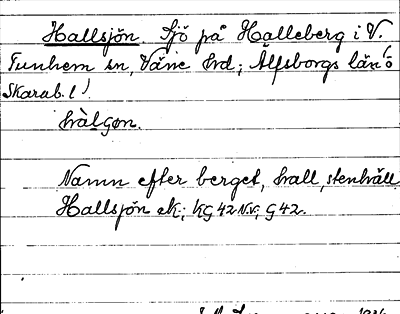 Hallsjön. Sjö på Halleberg i V.
Tunhem sn, Väne hd; Älfsborgs län
Skarab. l
hàlșon.
Namn efter berget, hall, stenhäll
Hallsjön ek.; KG 42 N.V.; G 42.